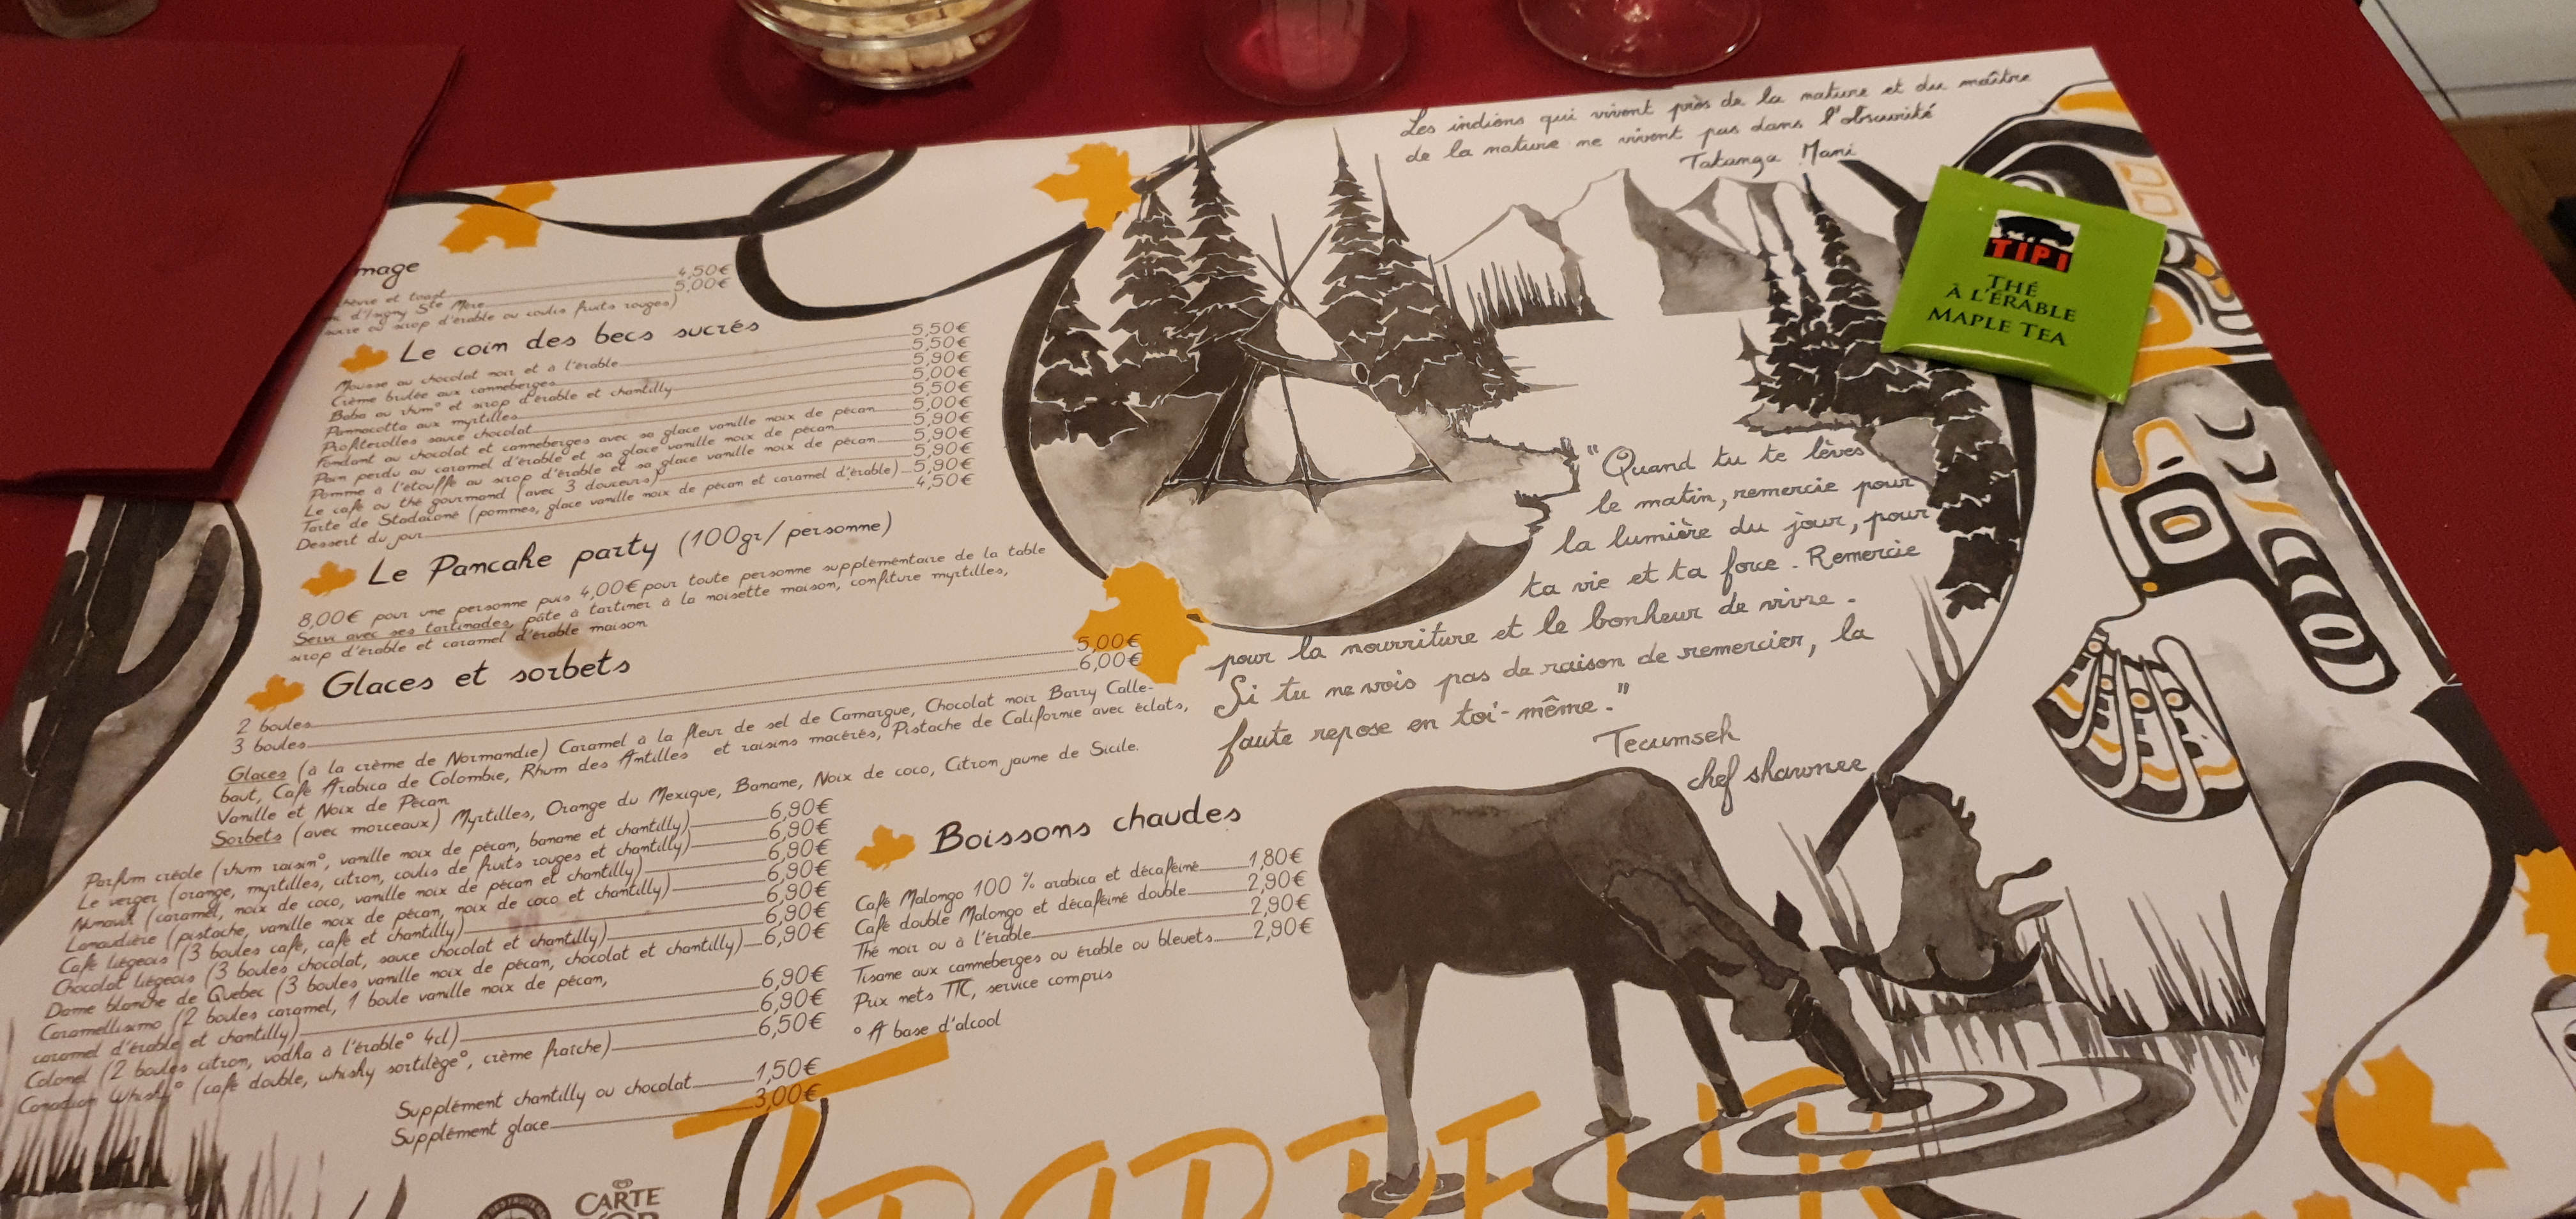 Les indiens qui vivent près de la nature et du maître
de la nature ne vivent pas dans l'obscurité
Tatanga Mani
TIPI
THÉ
À L'ÉRABLE
MAPLE TEA
mage
et toast 4,50€
d'Isigny Ste Mère 5,00€
sucre ou sirop d'érable ou coulis fruits rouges)
Le coin des becs sucrés
Mousse au chocolat noir et à l'érable 5,50€
Crème brulée aux canneberges 5,50€
Baba au rhum° et sirop d'érable et chantilly 5,90€
Pannacotta aux myrtilles 5,00€
Profiterolles sauce chocolat 5,50€
Fondant au chocolat et canneberges avec sa glace vanille noix de pécan 5,00€
Pain perdu au caramel d'érable et sa glace vanille noix de pécan 5,90€
Pomme à l'étouffé au sirop d'érable et sa glace vanille noix de pécan 5,90€
Le café ou thé gourmand (avec 3 douceurs) 5,90€
Tarte de Stadaconé (pommes, glace vanille noix de pécan et caramel d'érable) 5,90€
Dessert du jour 4,50€
Le Pancake party (100gr/personne)
8,00€ pour une personne puis 4,00€ pour toute personne supplémentaire de la table
Servi avec ses tartinades, pâte à tartiner à la noisette maison, confiture myrtilles,
sirop d'érable et caramel d'érable maison
Glaces et sorbets
2 boules 5,00€
3 boules 6,00€
Glaces (à la crème de Normandie) Caramel à la fleur de sel de Camargue, Chocolat noir Barry Calle-
baut, Café Arabica de Colombie, Rhum des Antilles et raisins macérés, Pistache de Californie avec éclats,
Vanille et Noix de Pécan
Sorbets (avec morceaux) Myrtilles, Orange du Mexique, Banane, Noix de coco, Citron jaune de Sicile.
Parfum créole (rhum raisin°, vanille noix de pécan, banane et chantilly) 6,90€
Le verger (orange, myrtilles, citron, coulis de fruits rouges et chantilly) 6,90€
Nunavut (caramel, noix de coco, vanille noix de pécan et chantilly) 6,90€
Lanaudière (pistache, vanille noix de pécan, noix de coco et chantilly) 6,90€
Café liégeois (3 boules café, café et chantilly) 6,90€
Chocolat liégeois (3 boules chocolat, sauce chocolat et chantilly) 6,90€
Dame blanche de Quebec (3 boules vanille noix de pécan, chocolat et chantilly) 6,90€
Caramellisimo (2 boules caramel, 1 boule vanille noix de pécan,
caramel d'érable et chantilly) 6,90€
Colonel (2 boules citron, vodka à l'érable° 4cl) 6,90€
Canadian Whisky° (café double, whisky sortilège°, crème fraîche) 6,50€
Supplément chantilly ou chocolat 1,50€
Supplément glace 3,00€
Boissons chaudes
Café Malongo 100 % arabica et décaféiné 1,80€
Café double Malongo et décaféiné double 2,90€
Thé noir ou à l'érable 2,90€
Tisane aux canneberges ou érable ou bleuets 2,90€
Prix nets TTC, service compris
° A base d'alcool
"Quand tu te lèves
le matin, remercie pour
la lumière du jour, pour
ta vie et ta force. Remercie
pour la nourriture et le bonheur de vivre.
Si tu ne vois pas de raison de remercier, la
faute repose en toi-même."
Tecumseh
chef shawnee
CARTE
D'OR
TRAPPEUR